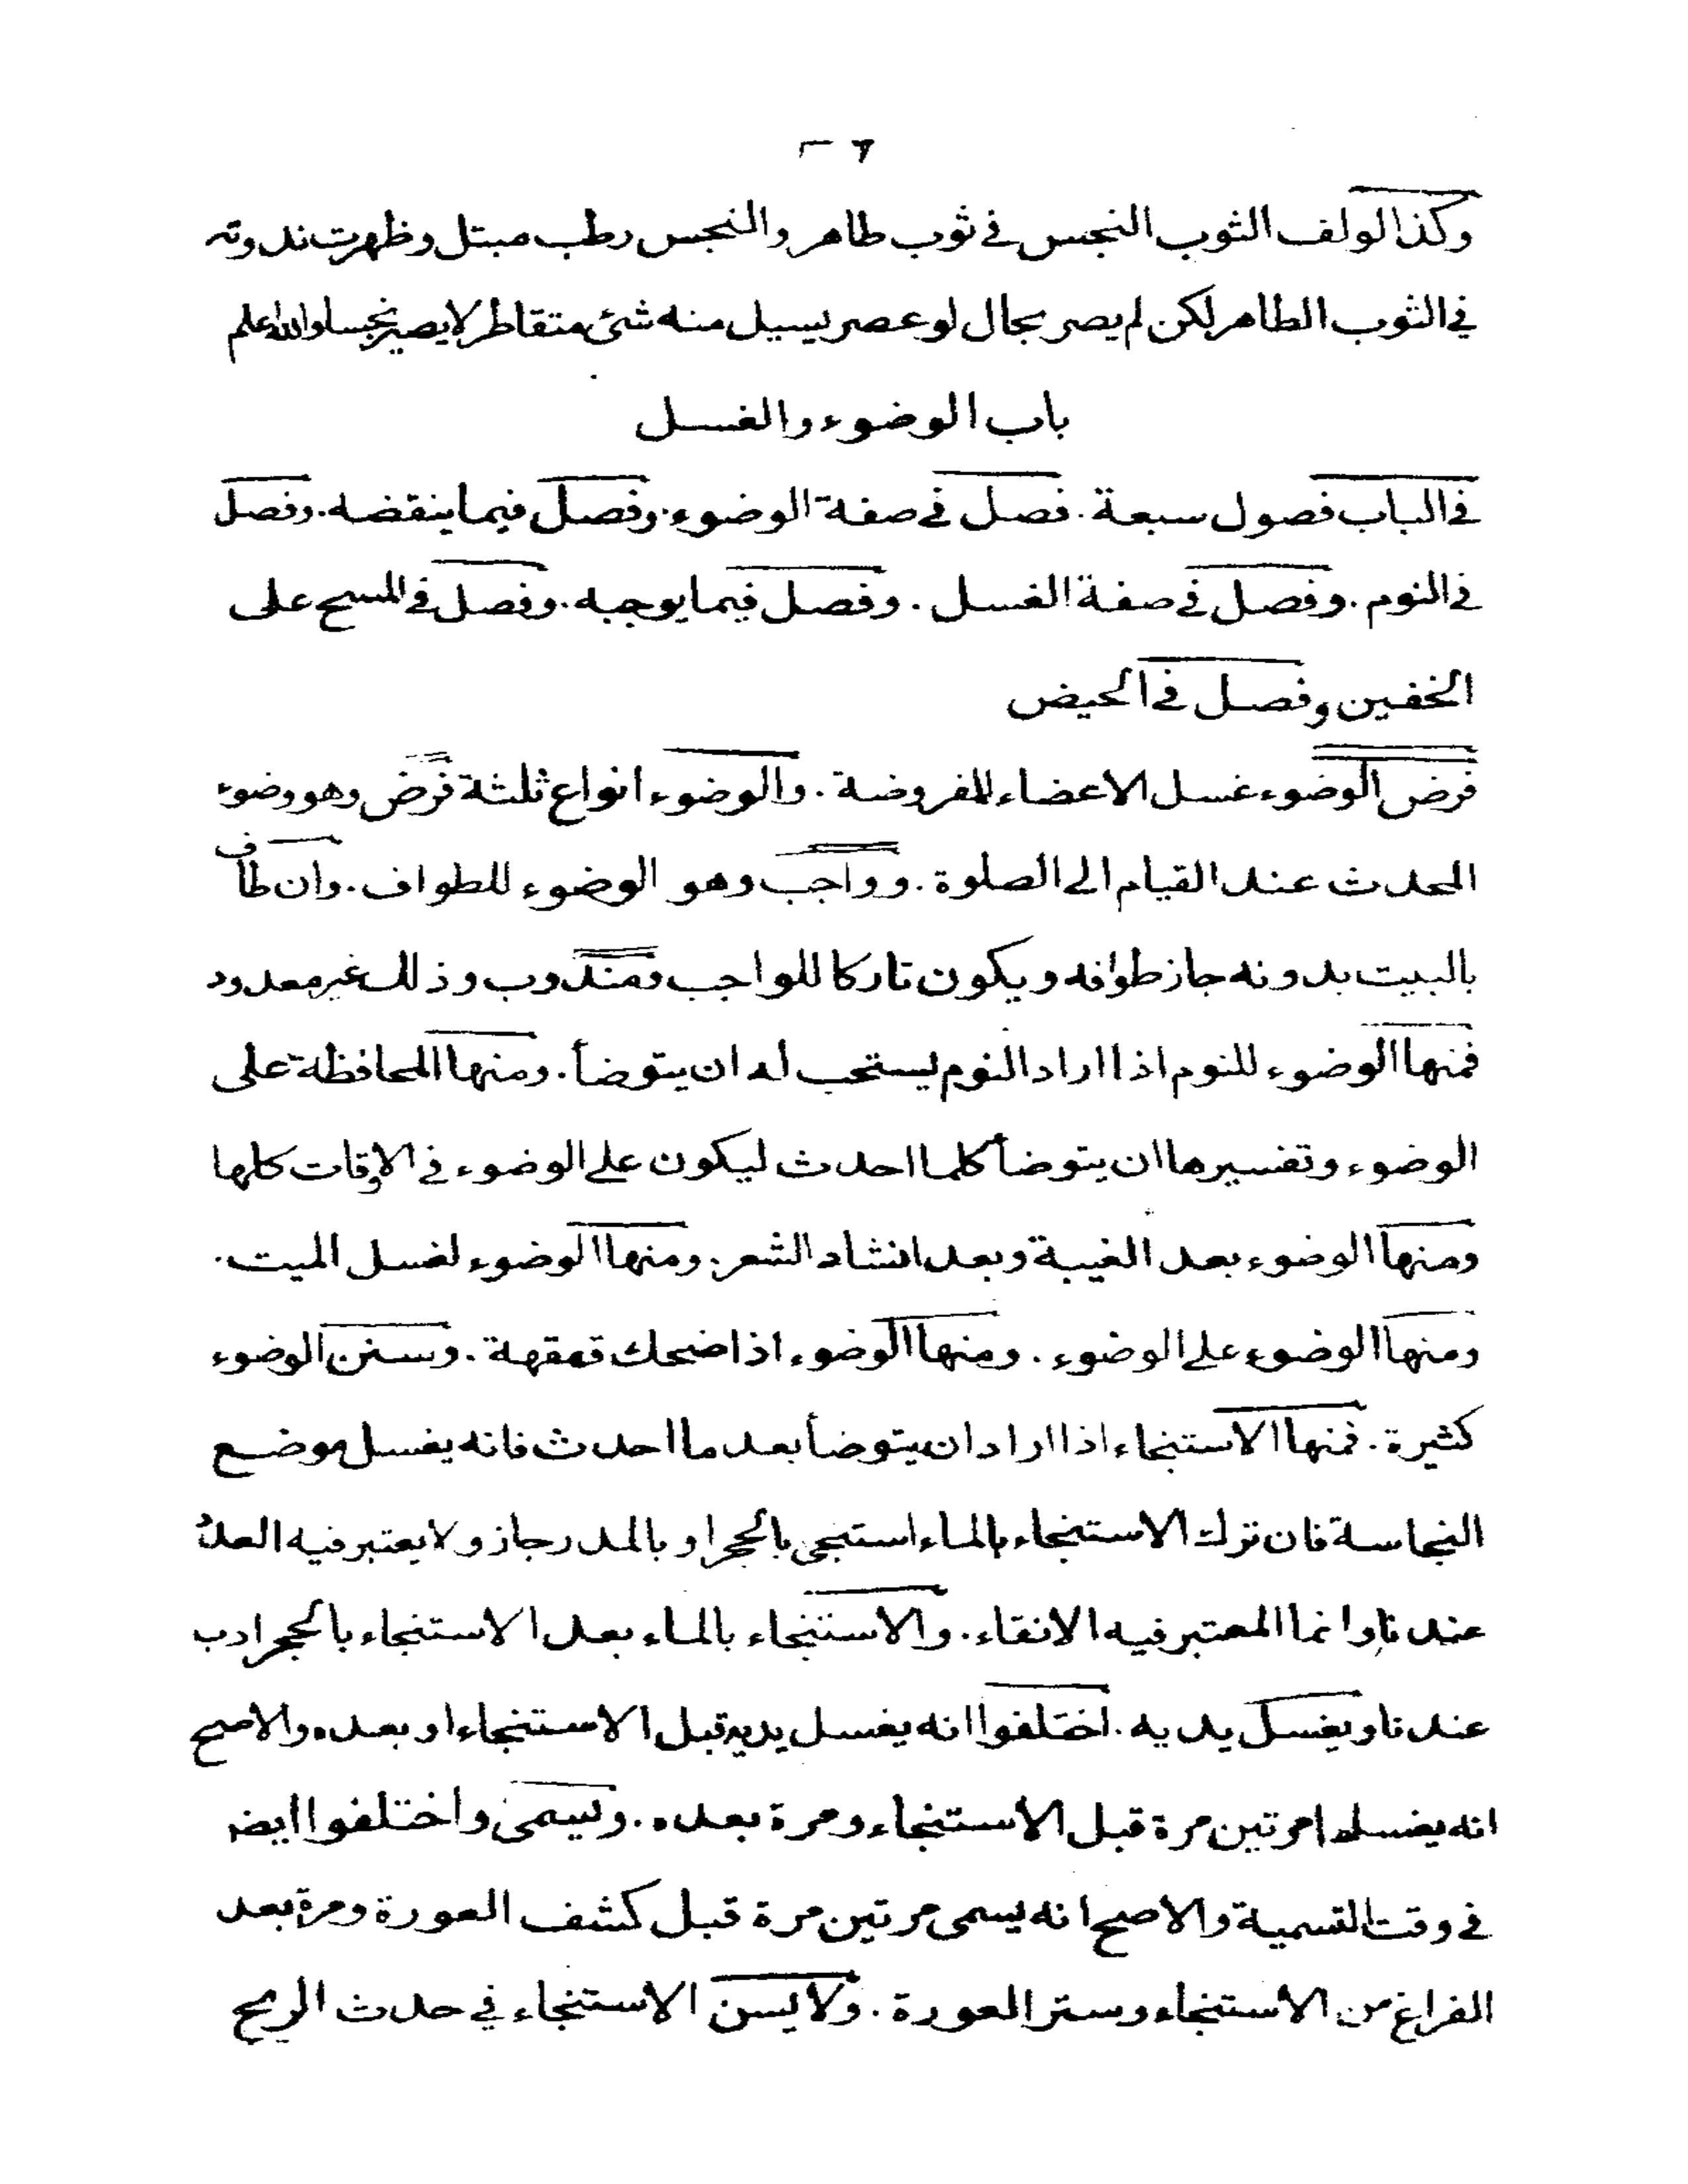 ٦
وكذا لو لف الثوب النجس في ثوب طاهر والنجس رطب مبتل وظهرت ندوته
في الثوب الطاهر لكن لم يصر بحال لو عصر يسيل منه شئ متقاطر لا يصير نجسا والله اعلم
باب الوضوء والغسل
في الباب فصول سبعة . فصل في صفة الوضوء . وفصل فيما ينقضه . وفصل
في النوم . وفصل في صفة الغسل . وفصل فيما يوجبه . وفصل في المسح على
الخفين وفصل في الحيض
فرض الوضوء غسل الاعضاء المفروضة . والوضوء انواع ثلثة فرض وهو وضوء
المحدث عند القيام الى الصلوة . وواجب وهو الوضوء للطواف . وان طاف
بالبيت بدونه جاز طوافه ويكون تاركا للواجب ومندوب وذلك غير معدود
فمنها الوضوء للنوم اذا اراد النوم يستحب له ان يتوضأ . ومنها المحافظة على
الوضوء وتفسيرها ان يتوضأ كلما احدث ليكون على الوضوء في الاوقات كلها
ومنها الوضوء بعد الغيبة وبعد انشاد الشعر . ومنها الوضوء لغسل الميت .
ومنها الوضوء على الوضوء . ومنها الوضوء اذا ضحك قهقهة . وسنن الوضوء
كثيرة . فمنها الاستنجاء اذا اراد ان يتوضأ بعد ما احدث فانه يغسل موضع
النجاسة فان ترك الاستنجاء بالماء استنجى بالحجر او بالمدر جاز ولا يعتبر فيه العدد
عندنا وانما المعتبر فيه الانقاء . والاستنجاء بالماء بعد الاستنجاء بالحجر ادب
عندنا ويغسل يديه . اختلفوا انه يغسل يديه قبل الاستنجاء او بعده والاصح
انه يغسلها مرتين مرة قبل الاستنجاء ومرة بعده . ويسمى واختلفوا ايضا
في وقت التسمية والاصح انه يسمى مرتين مرة قبل كشف العورة ومرة بعد
الفراغ من الاستنجاء وستر العورة . ولا يسن الاستنجاء في حدث الريح